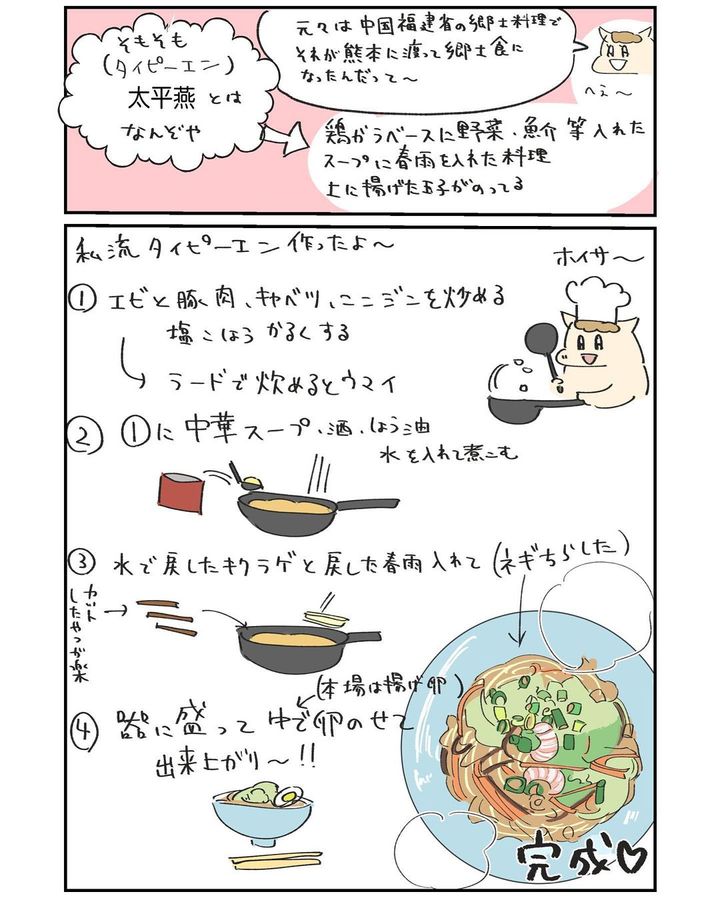 そもそも
(タイピーエン)
太平燕とは
なんぞや
元々は中国福建省の郷土料理で
それが熊本に渡って郷土食に
なったんだって〜
へぇ〜
鶏がらベースに野菜、魚介等入れた
スープに春雨を入れた料理
上に揚げた玉子がのってる
私流タイピーエン作ったよ〜
ホイサ〜
① エビと豚肉、キャベツ、ニンジンを炒める
塩こしょうかるくする
ラードで炒めるとウマイ
② ①に中華スープ、酒、しょう油
水を入れて煮こむ
③ 水で戻したキクラゲと戻した春雨入れて(ネギちらした)
カット
したやつが楽
(本場は揚げ卵)
④ 器に盛ってゆで卵のせて
出来上がり〜!!
完成♡